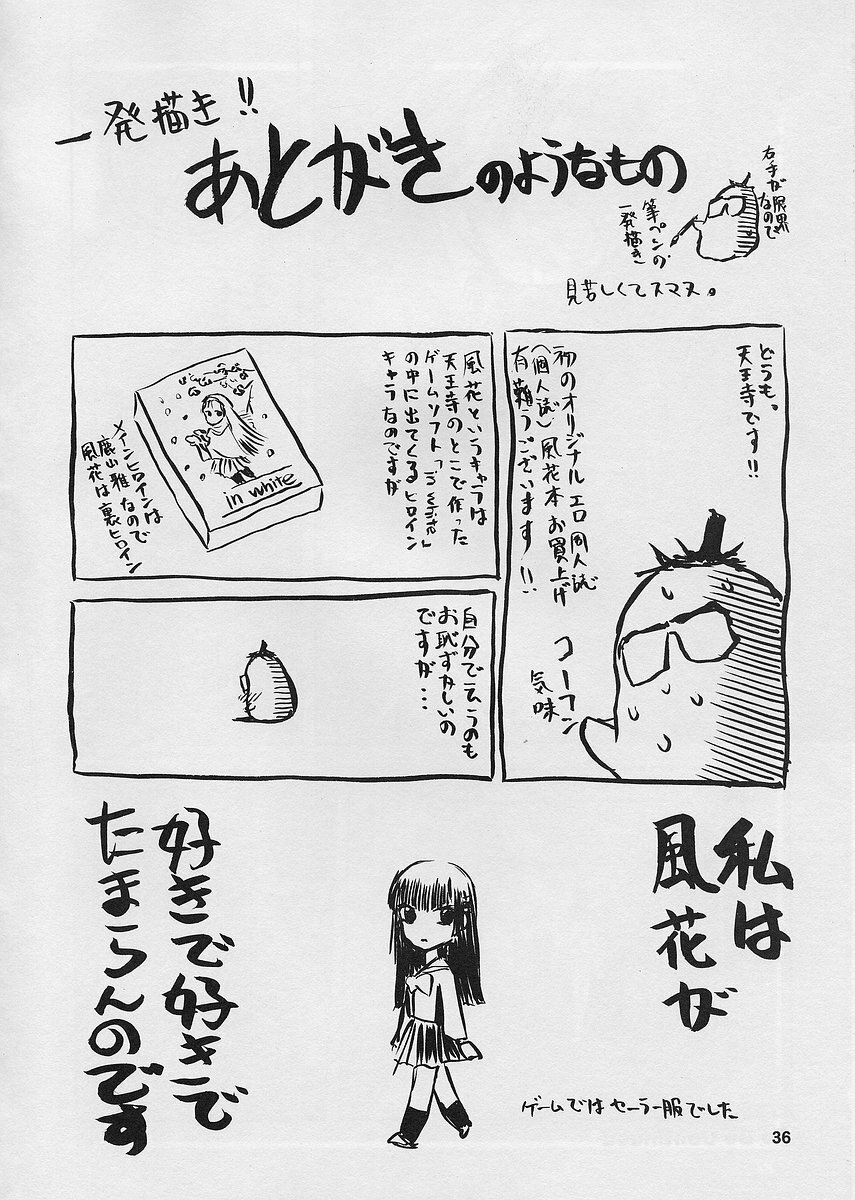 一発描き!!
あとがきのようなもの
右手が
限界
なので
筆ペンの
一発描き
見苦しくてスマヌ。
どうも。
天王寺です!!
初のオリジナル エロ同人誌
(個人誌)風花本お買上げ
有難うございます!!
コーフン
気味
風花というキャラは
天王寺のとこで作った
ゲームソフト「in white」
の中に出てくるヒロイン
キャラなのですが
in white
メインヒロインは
鹿山雅なので
風花は裏ヒロイン
自分で云うのも
お恥ずかしいの
ですが・・・
私は
風花が
好きで好きで
たまらんのです
ゲームではセーラー服でした
36